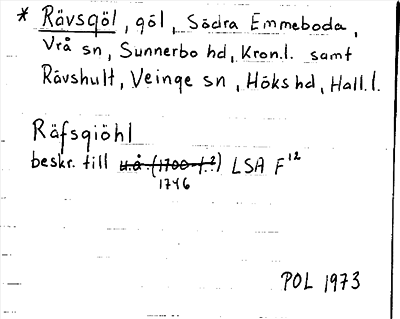 * Rävsgöl, göl, Södra Emmeboda,
Vrå sn, Sunnerbo hd, Kron.l. samt
Rävshult, Veinge sn, Höks hd, Hall.l.
Räfsgiöhl
beskr. till u.å (1700-t.?) LSA F12
1746
POL 1973